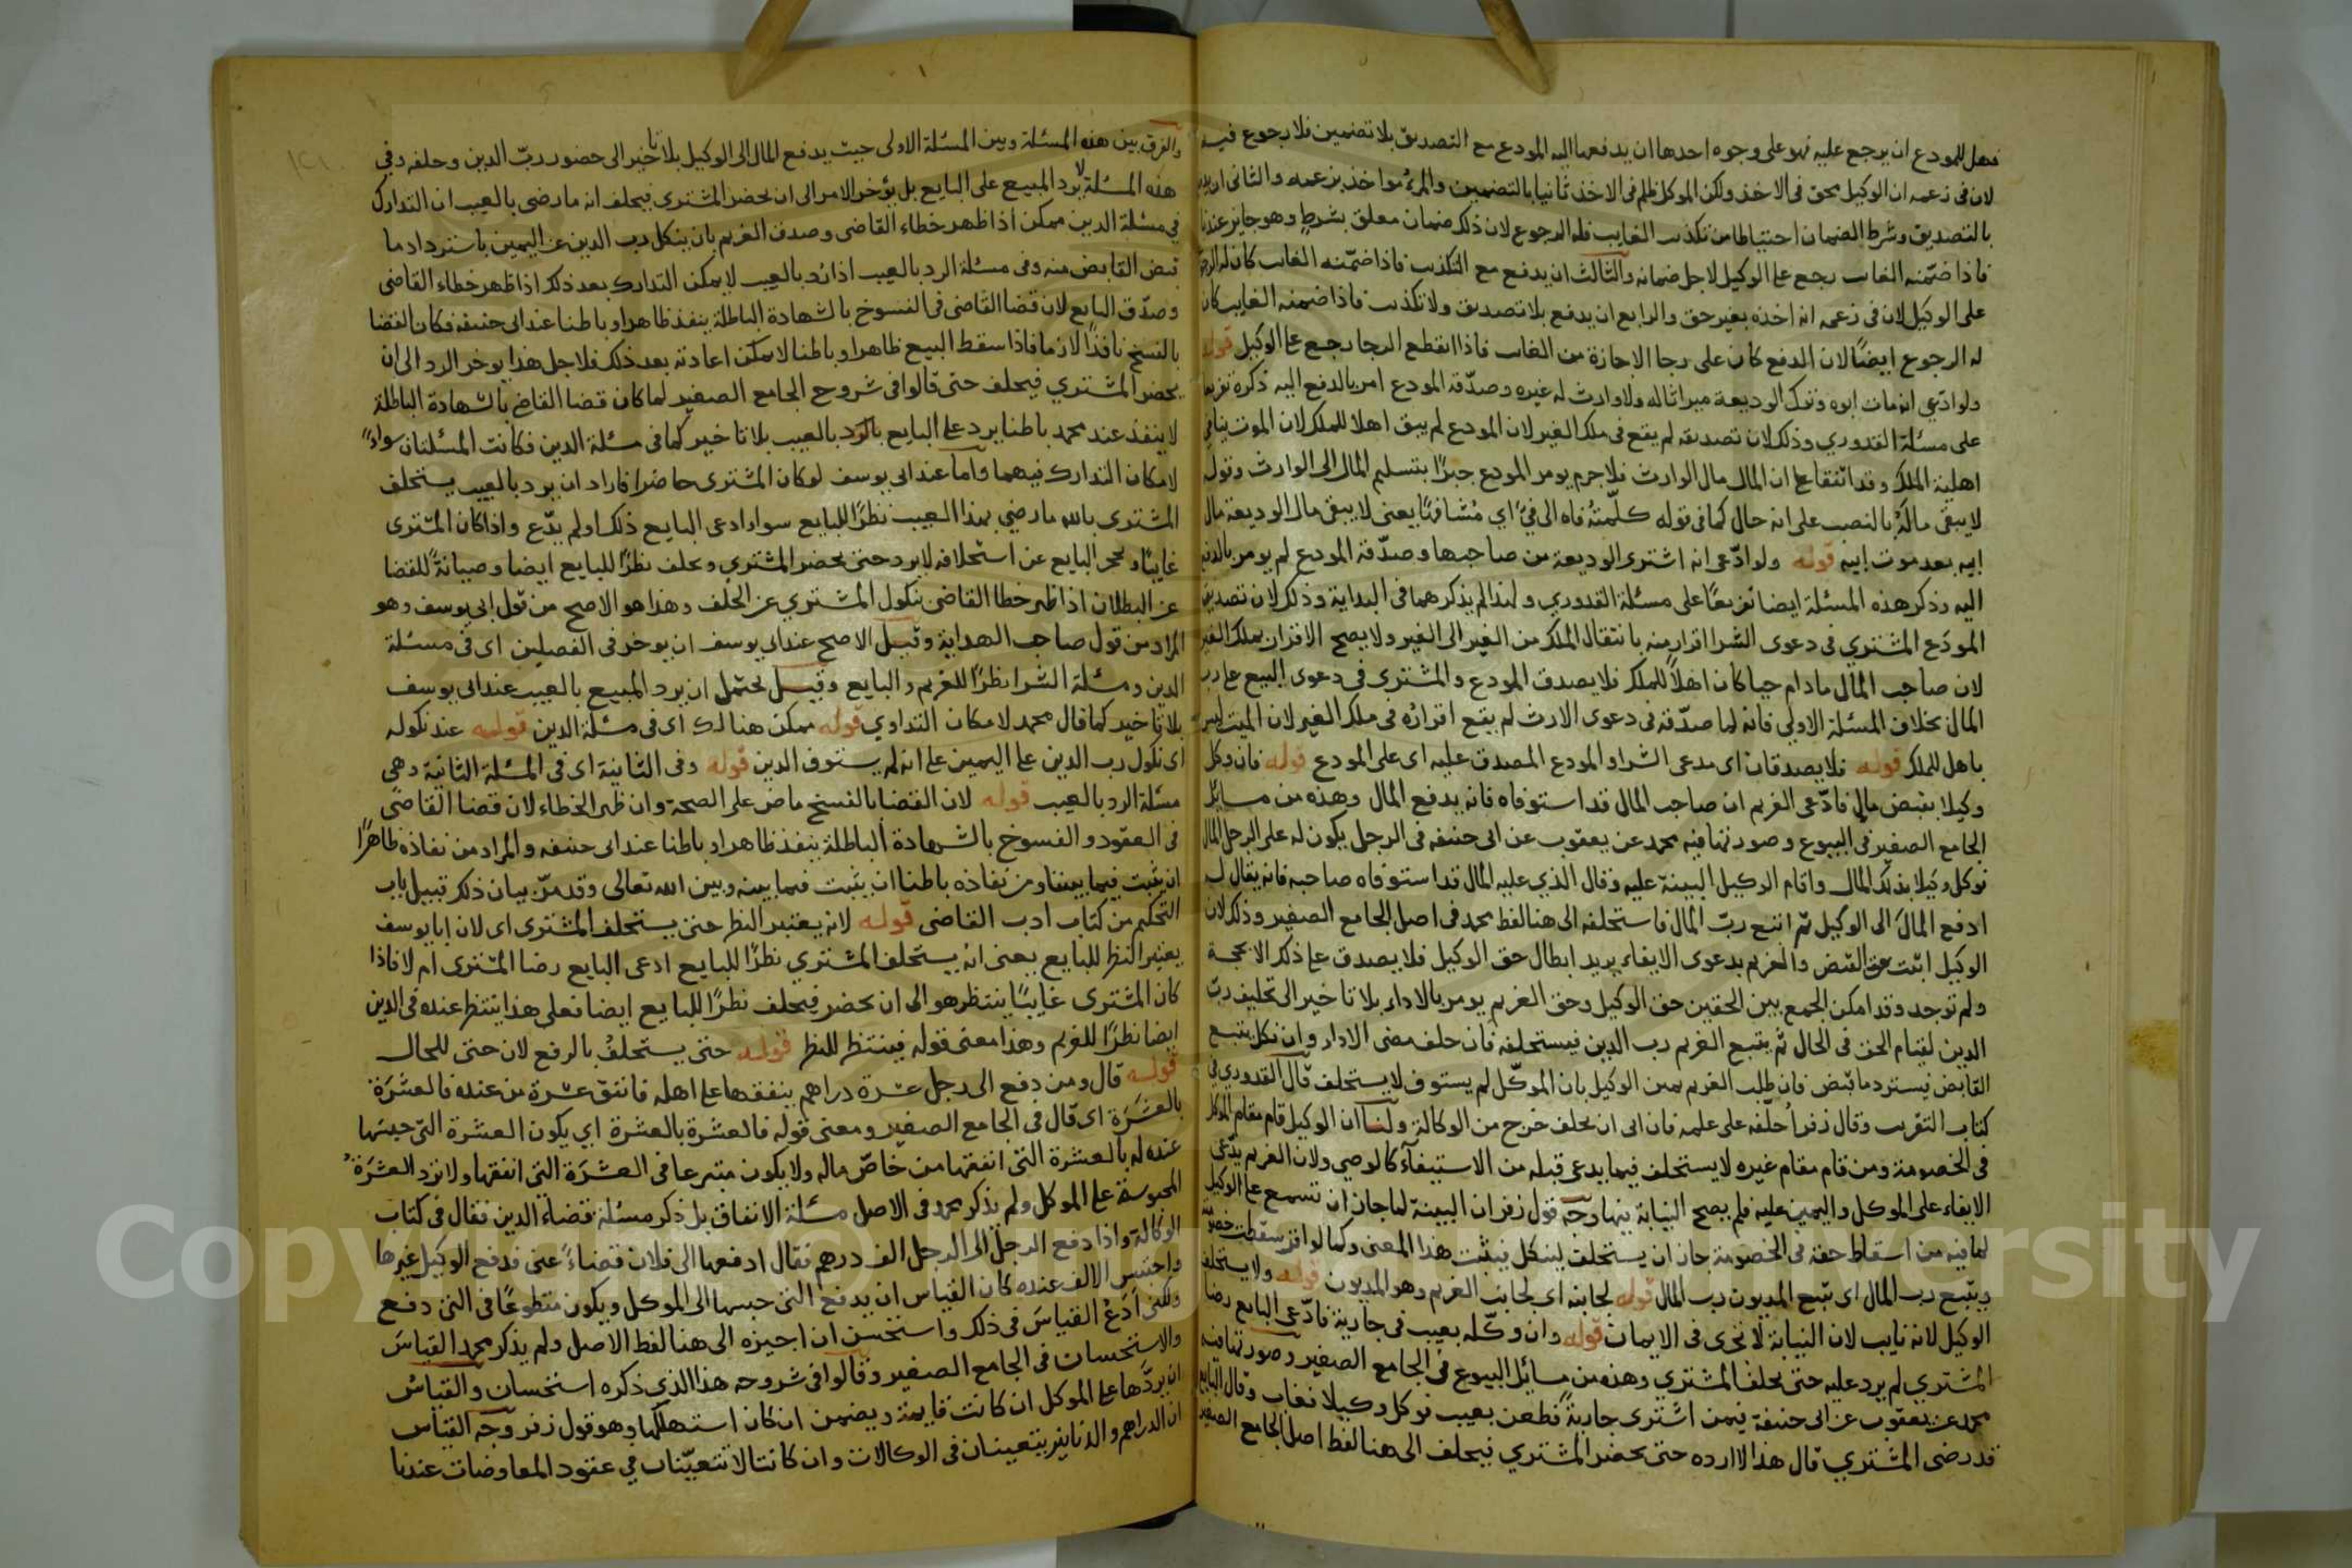 فهل للمودع ان يرجع عليه فهو على وجوه احدها ان يدفعها اليه المودع مع التصديق بلا تضمين فلا رجوع فيه
لان في زعمه ان الوكيل محق في الاخذ ولكن الموكل ظلم في الاخذ ثانيا بالتضمين والمرء مواخذ بزعمه والثاني ان يدفع
بالتصديق وشرط الضمان احتياطا من تكذيب الغايب فله الرجوع لان ذلك ضمان معلق بشرط وهو جايز عندنا
فاذا ضمّنه الغايب رجع على الوكيل لاجل ضمانه والثالث ان يدفع مع التكذيب فاذا ضمّنه الغايب كان له الرجوع
على الوكيل لان في زعمه انه اخذه بغير حق والرابع ان يدفع بلا تصديق ولا تكذيب فاذا ضمنه الغايب كان
له الرجوع ايضًا لان الدفع كان على رجا الاجازة من الغايب فاذا انقطع الرجا رجع على الوكيل قوله
ولو ادّعى انه مات ابوه وترك الوديعة ميراثا له ولا وارث له غيره وصدّقه المودع امر بالدفع اليه ذكره تفريعا
على مسئلة القدوري وذلك لان تصديقه لم يقع في ملك الغير لان المودع لم يبق اهلا للملك لان الموت ينافي
اهلية الملك وقد اتفقا على ان المال مال الوارث فلا جرم يومر المودع جبرًا بتسليم المال الى الوارث وقوله
لا يبقى مالَهُ بالنصب على انه حال كما في قوله كلّمتُهُ فاه الى فيَّ اي مُشافهًا يعني لا يبقى مال الوديعة مال
ابيه بعد موت ابيه قوله ولو ادّعى انه اشترى الوديعة من صاحبها وصدّقه المودع لم يومر بالدفع
اليه وذكر هذه المسئلة ايضا تفريعًا على مسئلة القدوري ولهذا لم يذكرهما في البداية وذلك لان تصديق
المودَع المشتري في دعوى الشرا اقرار منه بانتقال الملك من الغير الى الغير ولا يصح الاقرار بملك الغير
لان صاحب المال ما دام حيا كان اهلاً للملك فلا يصدق المودع والمشتري في دعوى البيع على رب
المال بخلاف المسئلة الاولى فانه لما صدّقه في دعوى الارث لم يقع اقراره في ملك الغير لان الميت ليس
باهل للملك قوله فلا يصدقان اى مدعي الشرا والمودع المصدق عليه اى على المودع قوله فان وكل
وكيلا بقبض مال فادّعى الغريم ان صاحب المال قد استوفاه فانه يدفع المال وهذه من مسايل
الجامع الصغير في البيوع وصورتها فيه محمد عن يعقوب عن ابي حنيفه في الرجل يكون له على الرجل المال
فوكل وكيلا بذلك المال واقام الوكيل البينة عليه وقال الذي عليه المال قد استوفاه صاحبه فانه يقال له
ادفع المالَ الى الوكيل ثم اتبع ربّ المال فاستحلفه الى هنا لفظ محمد في اصل الجامع الصغير وذلك لان
الوكيل اثبت حق القبض والغريم بدعوى الايفاء يريد ابطال حق الوكيل فلا يصدق على ذلك الا بحجة
ولم توجد وقد امكن الجمع بين الحقين حق الوكيل وحق الغريم يومر بالاداء بلا تاخير الى تحليف ربّ
الدين لقيام الحق في الحال ثم يتبع الغريم رب الدين فيستحلفه فان حلف مضى الاداء وان نكل يتبع
القابض فيسترد ما قبض فان طلب الغريم يمين الوكيل بان الموكّل لم يستوف لا يستحلف قال القدوري في
كتاب التقريب وقال زفر احلّفه على علمه فان ابى ان يحلف خرج من الوكالة ولنا ان الوكيل قام مقام الموكل
في الخصومة ومن قام مقام غيره لا يستحلف فيما يدعى قبله من الاستيفآء كالوصي ولان الغريم يدّعي
الايفاء على الموكل واليمين عليه فلم يصح النيابة فيها وجه قول زفر ان البينة لما جاز ان تسمع على الوكيل
لما فيه من اسقاط حقه في الخصومة جاز ان يستحلف لينكل فيثبت هذا المعنى وكما لو اقر سقطت
ويتبع رب المال اى يتبع المديون رب المال قوله لجانبه اى لجانب الغريم وهو المديون قوله ولا يستحلف
الوكيل لانه نايب لان النيابة لا تجرى في الايمان قوله وان وكّله بعيب في جارية فادّعى البايع رضا
المشتري لم يرد عليه حتى يحلف المشتري وهذه من مسائل البيوع في الجامع الصغير وصورتها فيه
محمد عن يعقوب عن ابي حنيفة فيمن اشترى جاريةً فطعن بعيب فوكل وكيلا فغاب وقال البايع
قد رضى المشتري قال هذا لا ارده حتى يحضر المشتري فيحلف الى هنا لفظ اصل الجامع الصغير
والفرق بين هذه المسئلة وبين المسئلة الاولى حيث يدفع المال الى الوكيل بلا تاخير الى حضور ربّ الدين وحلفه وفي
هذه المسئلة لا يرد المبيع على البايع بل يؤخر الامر الى ان يحضر المشتري فيحلف انه ما رضى بالعيب ان التدارك
في مسئلة الدين ممكن اذا ظهر خطاء القاضى وصدق الغريم بان ينكل رب الدين عن اليمين باسترداد ما
قبض القابض منه وفي مسئلة الرد بالعيب اذا رُد بالعيب لا يمكن التدارك بعد ذلك اذا ظهر خطاء القاضى
وصدّق البايع لان قضا القاضى في الفسوخ بالشهادة الباطلة ينفذ ظاهرا وباطنا عند ابى حنيفه فكان القضا
بالفسخ نافذًا لازما فاذا سقط البيع ظاهرا وباطنا لا يمكن اعادته بعد ذلك فلاجل هذا يوخر الرد الى ان
يحضر المشتري فيحلف حتى قالوا في شروح الجامع الصغير لما كان قضا القاضى بالشهادة الباطلة
لا ينفذ عند محمد باطنا يرد على البايع بالرد بالعيب بلا تاخير كما في مسئلة الدين فكانت المسئلتان سواءً
لامكان التدارك فيهما واما عند ابى يوسف لو كان المشترى حاضرا فاراد ان يرد بالعيب يستحلف
المشترى بالله ما رضي بهذا العيب نظرًا للبايع سوا ادعى البايع ذلك او لم يدّع واذا كان المشترى
غايبًا وعجز البايع عن استحلافه لا يرد حتى يحضر المشتري ويحلف نظرًا للبايع ايضا وصيانةً للقضا
عن البطلان اذا ظهر خطا القاضى بنكول المشتري عن الحلف وهذا هو الاصح من قول ابى يوسف وهو
المراد من قول صاحب الهداية وقيل الاصح عند ابي يوسف ان يوخر في الفصلين اى في مسئلة
الدين ومسئلة الشرا نظرًا للغريم والبايع وقيل يحتمل ان يرد المبيع بالعيب عند ابى يوسف
بلا تاخير كما قال محمد لامكان التداوي قوله ممكن هنالك اى في مسئلة الدين قوله عند نكوله
اى نكول رب الدين على اليمين على انه لم يستوف الدين قوله وفى الثانية اى في المسئلة الثانية وهى
مسئلة الرد بالعيب قوله لان القضا بالفسخ ماض على الصحة وان ظهر الخطاء لان قضا القاضي
في العقود والفسوخ بالشهادة الباطلة ينفذ ظاهرا وباطنا عند ابى حنيفه والمراد من نفاذه ظاهرًا
ان يثبت فيما بيننا ومن نفاذه باطنا ان يثبت فيما بينه وبين الله تعالى وقد مرّ بيان ذلك قبيل باب
التحكيم من كتاب ادب القاضى قوله لانه يعتبر النظر حتى يستحلف المشترى اى لان ابا يوسف
يعتبر النظر للبايع يعنى انه يستحلف المشتري نظرًا للبايع ادعى البايع رضا المشترى ام لا فاذا
كان المشترى غايبًا ينتظر هو الى ان يحضر فيحلف نظرًا للبايع ايضا فعلى هذا ينتظر عنده في الدين
ايضا نظرًا للغريم وهذا معنى قوله فينتظر للنظر قوله حتى يستحلفُ بالرفع لان حتى للحال
قوله قال ومن دفع الى رجل عشرة دراهم ينفقها على اهله فانفق عشرة من عنده فالعشرة
بالعشرة اى قال في الجامع الصغير ومعنى قوله فالعشرة بالعشرة اي يكون العشرة التي حبسها
عنده له بالعشرة التى انفقها من خاصّ ماله ولا يكون متبرعا في العشرة التى انفقها ولا ترد العشرة
المحبوسة على الموكل ولم يذكر محمد فى الاصل مسئلة الانفاق بل ذكر مسئلة قضاء الدين فقال في كتاب
الوكالة واذا دفع الرجل الى الرجل الف درهم فقال ادفعها الى فلان قضاءً عنى فدفع الوكيل غيرها
واحتبس الالف عنده كان القياس ان يدفع التى حبسها الى الموكل ويكون متطوعًا في التى دفع
ولكنى ادَعُ القياسَ في ذلك واستحسن ان اجيزه الى هنا لفظ الاصل ولم يذكر محمد القياسَ
والاستحسان في الجامع الصغير وقالوا في شروحه هذا الذي ذكره استحسان والقياس
ان يردّها على الموكل ان كانت قايمة ويضمن ان كان استهلكها وهو قول زفر وجه القياس
ان الدراهم والدنانير يتعينان في الوكالات وان كانتا لا تتعيّنان في عقود المعاوضات عندنا